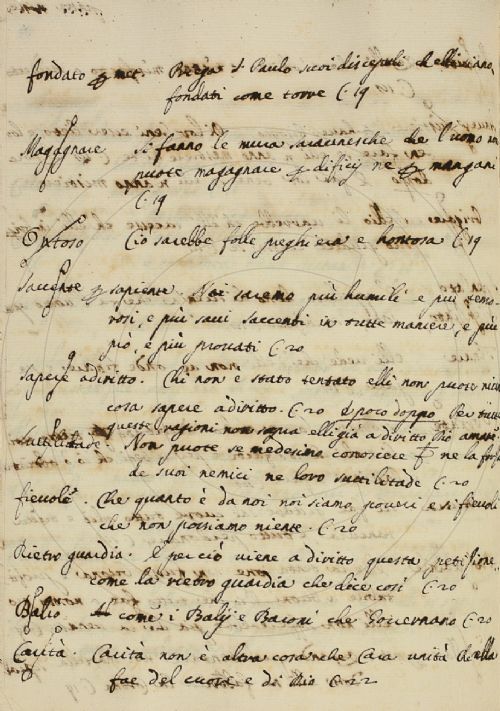 fondato p met. Prega S. Paulo suoi discepoli ch elli siano
fondati come torre C. 19
Magagnare Si fanno le mura saracinesche che l'uomo no
puote magagnare p dificij ne p mangani
C. 19
Ontoso Cio sarebbe folle preghiera e hontosa C. 19
Saccente p sapiente. Noi saremo più humili e più temo
rosi, e più savi saccenti in tutte maniere, e più
prò, e più provati C. 20
Sapere a diritto. Chi non è stato tentato elli non puote niuna
cosa sapere a diritto. C. 20 E poco doppo Per tutte
queste ragioni non sapra elli già a diritto
Suttilitade. Non puote se medesimo conoscere ne la forza
de suoi nemici ne loro suttilitade C. 20
fievole. Che quanto è da noi noi siamo poveri e si fievoli
che non possiamo niente. C. 20
Rietro guardia. E perciò viene a diritto questa petisione
come la rietro guardia che dice così C. 20
Balio come i Balij e Baroni che Governano C. 20
Carità. Carità non è altra cosa che Cara unità ch ella
fae del cuore e di Dio C. 22